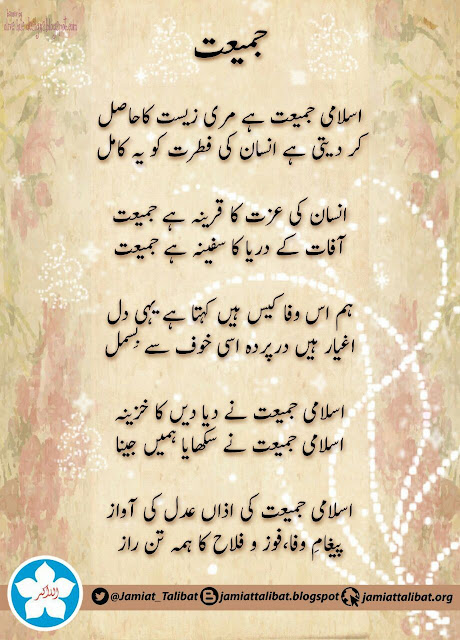 جمیعت
اسلامی جمیعت ہے مری زیست کا حاصل
کر دیتی ہے انسان کی فطرت کو یہ کامل
انسان کی عزت کا قرینہ ہے جمیعت
آفات کے دریا کا سفینہ ہے جمیعت
ہم اس وفا کیس ہیں کہتا ہے یہی دل
اغیار ہیں درپردہ اسی خوف سے بسمل
اسلامی جمیعت نے دیا دیں کا خزینہ
اسلامی جمیعت نے سکھایا ہمیں جینا
اسلامی جمیعت کی اذاں عدل کی آواز
پیغامِ وفا، فوز و فلاح کا ہمہ تن راز
اللہ اکبر
@Jamiat_Talibat jamiattalibat.blogspot jamiattalibat.org